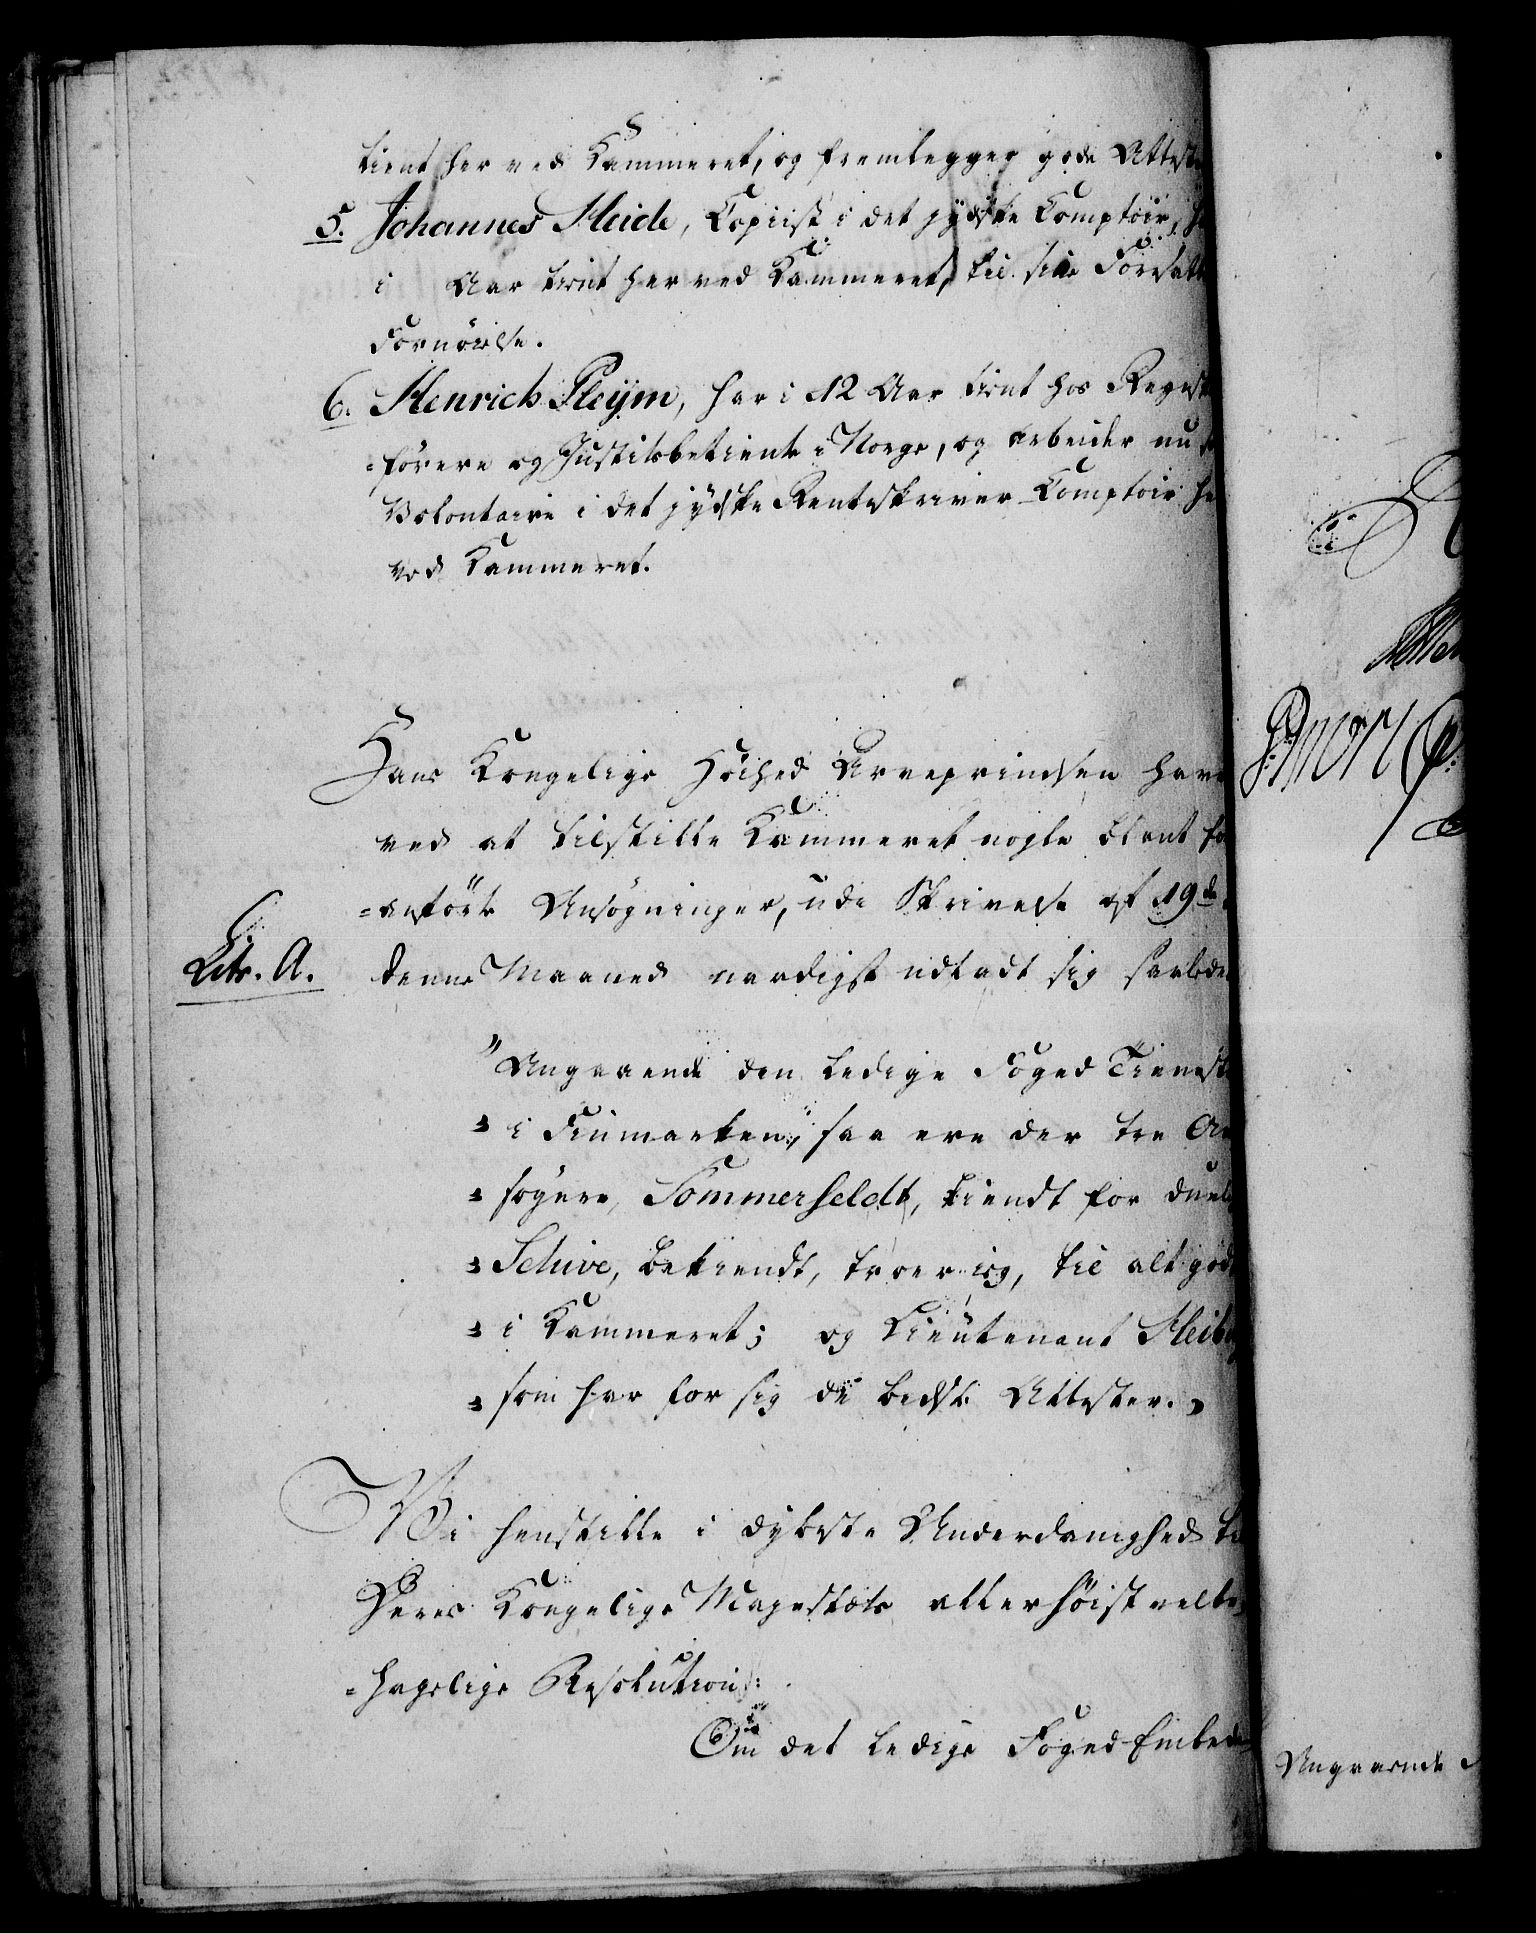 tient her ved Kammeret, og fremlegger gode Atteste
5. Johannes Heide, Copiist i det jydske Comptoir,
i Aar tient her ved Kammeret, til sine Forsatt
Fornöielse.
6. Henrich Pleym, har i 12 Aar tient hos Regns
=förere og Justitsbetiente i Norge, og arbeider nu
Volontaire i det jydske Renteskriver-Comptoir he
ved Kammeret.
Hans Kongelige Höihed Arveprindsen have
ved at tilstille Kammeret nogle blant for
=anförte Ansögninger, udi Skrivelse af 19de
Litr. A.
denne Maaned naadigst udladt sig saalede
"Angaaende den ledige Foged Tieneste
" i Finmarken, saa ere der tre An
" sögere, Sommerfeldt, kiendt for duel
" Schive, bekiendt, troer jeg, til alt godt
" i Kammeret; og Lieutenant Heib
" som har for sig de bedste Attester."
Vi henstille i dybeste Underdanighed til
Deres Kongelige Majestæts allerhöist velbe
=hagelige Resolution:
Om det ledige Foged-Embede
Angaaende